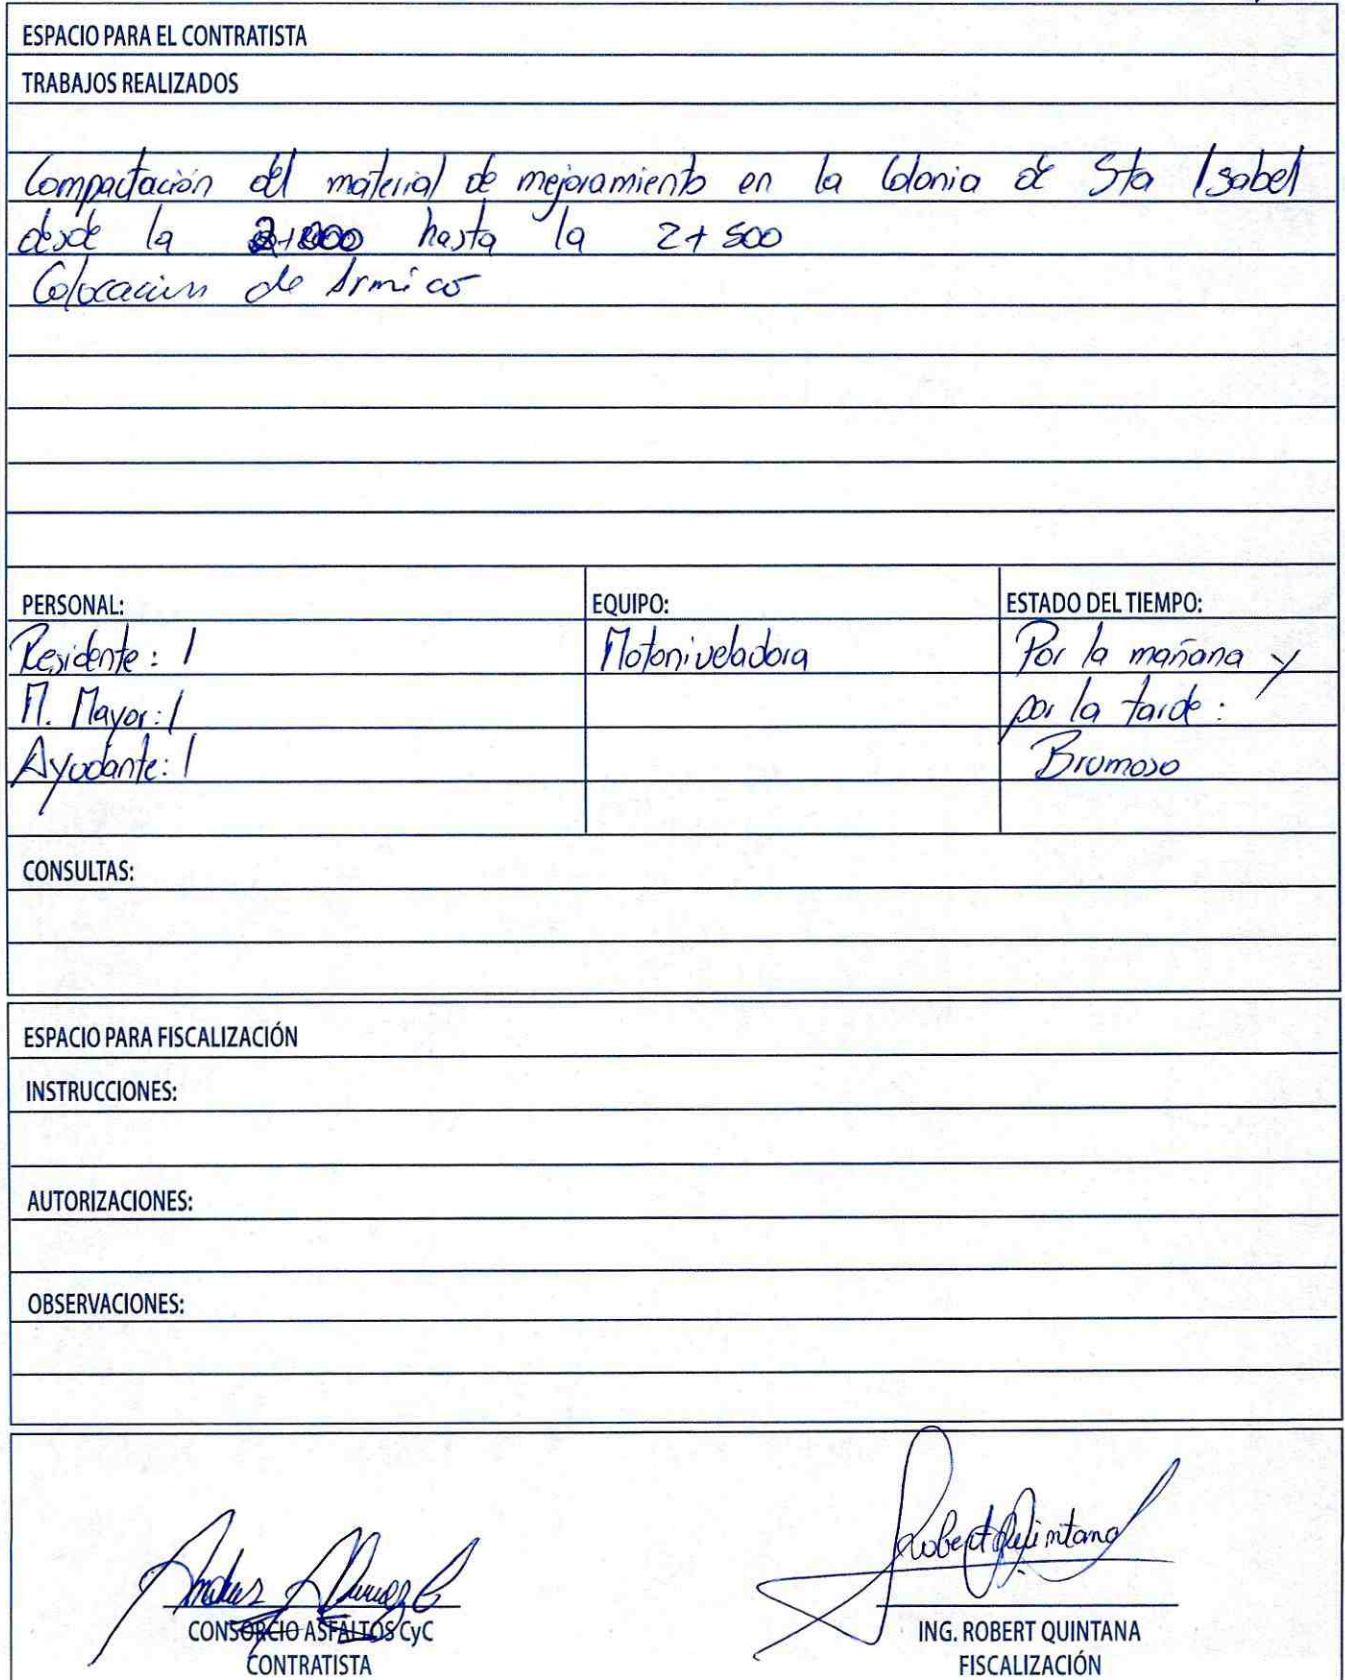 ESPACIO PARA EL CONTRATISTA
TRABAJOS REALIZADOS
Compactación del material de mejoramiento en la Colonia de Sta Isabel
desde la hasta la 2+500
Colocacion de Armico
PERSONAL: EQUIPO: ESTADO DEL TIEMPO:
Residente: 1 Motoniveladora Por la mañana y
M. Mayor: 1 por la tarde:
Ayudante: 1 Brumoso
CONSULTAS:
ESPACIO PARA FISCALIZACIÓN
INSTRUCCIONES:
AUTORIZACIONES:
OBSERVACIONES:
Robert Quintana
CONSORCIO ASFALTOS CyC ING. ROBERT QUINTANA
CONTRATISTA FISCALIZACIÓN